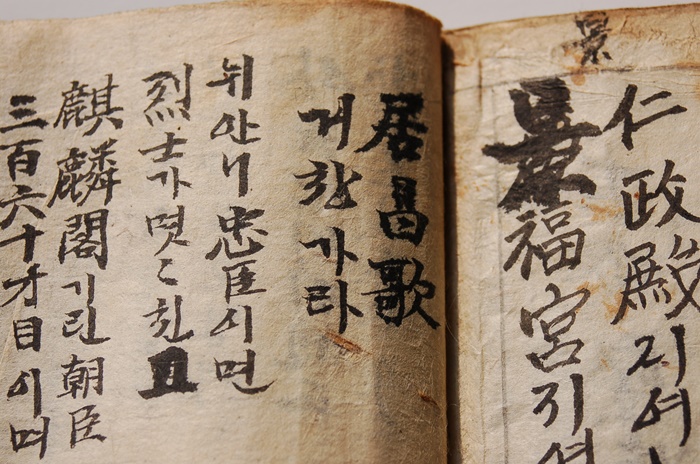 仁政殿지여
景
景福宮지여
居昌歌
거창가라
뉘안니忠臣이면
烈士가몃々친
麒麟閣기린朝臣
三百六十才目이며